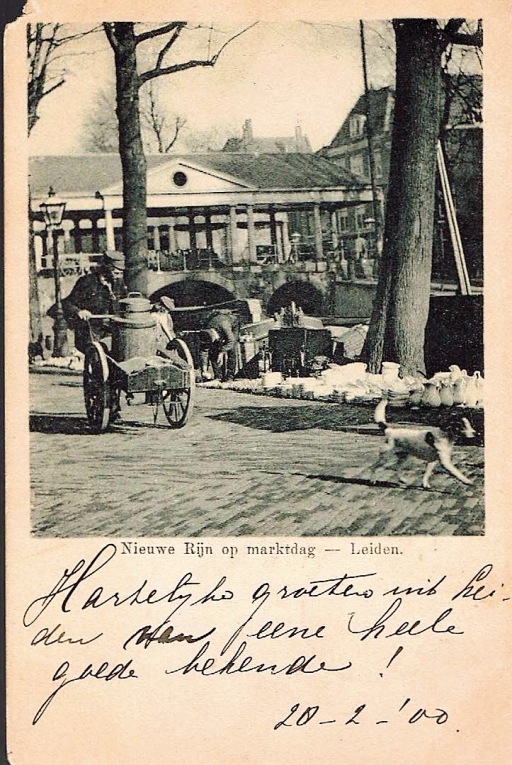 Nieuwe Rijn op marktdag — Leiden.
Hartelijke groeten uit Lei-
den van eene heele
goede bekende!
20-2-'00.